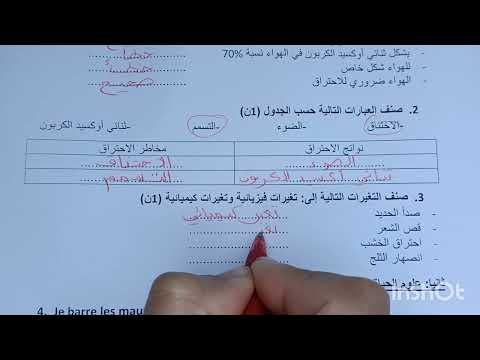 - يشكل ثنائي أوكسيد الكربون في الهواء نسبة 70% خطأ
- للهواء شكل خاص خطأ
- الهواء ضروري للاحتراق صحيح
2. صنف العبارات التالية حسب الجدول (1ن)
-الاختناق -الضوء -التسمم -ثنائي أوكسيد الكربون
نواتج الاحتراق مخاطر الاحتراق
الضوء الاختناق
ثنائي أكسيد الكربون التسمم
3. صنف التغيرات التالية إلى: تغيرات فيزيائية وتغيرات كيميائية (1ن)
- صدأ الحديد تغير كيميائي
- قص الشعر
- احتراق الخشب
- انصهار الثلج
ثانيا: علوم
4. Je barre les
inshot